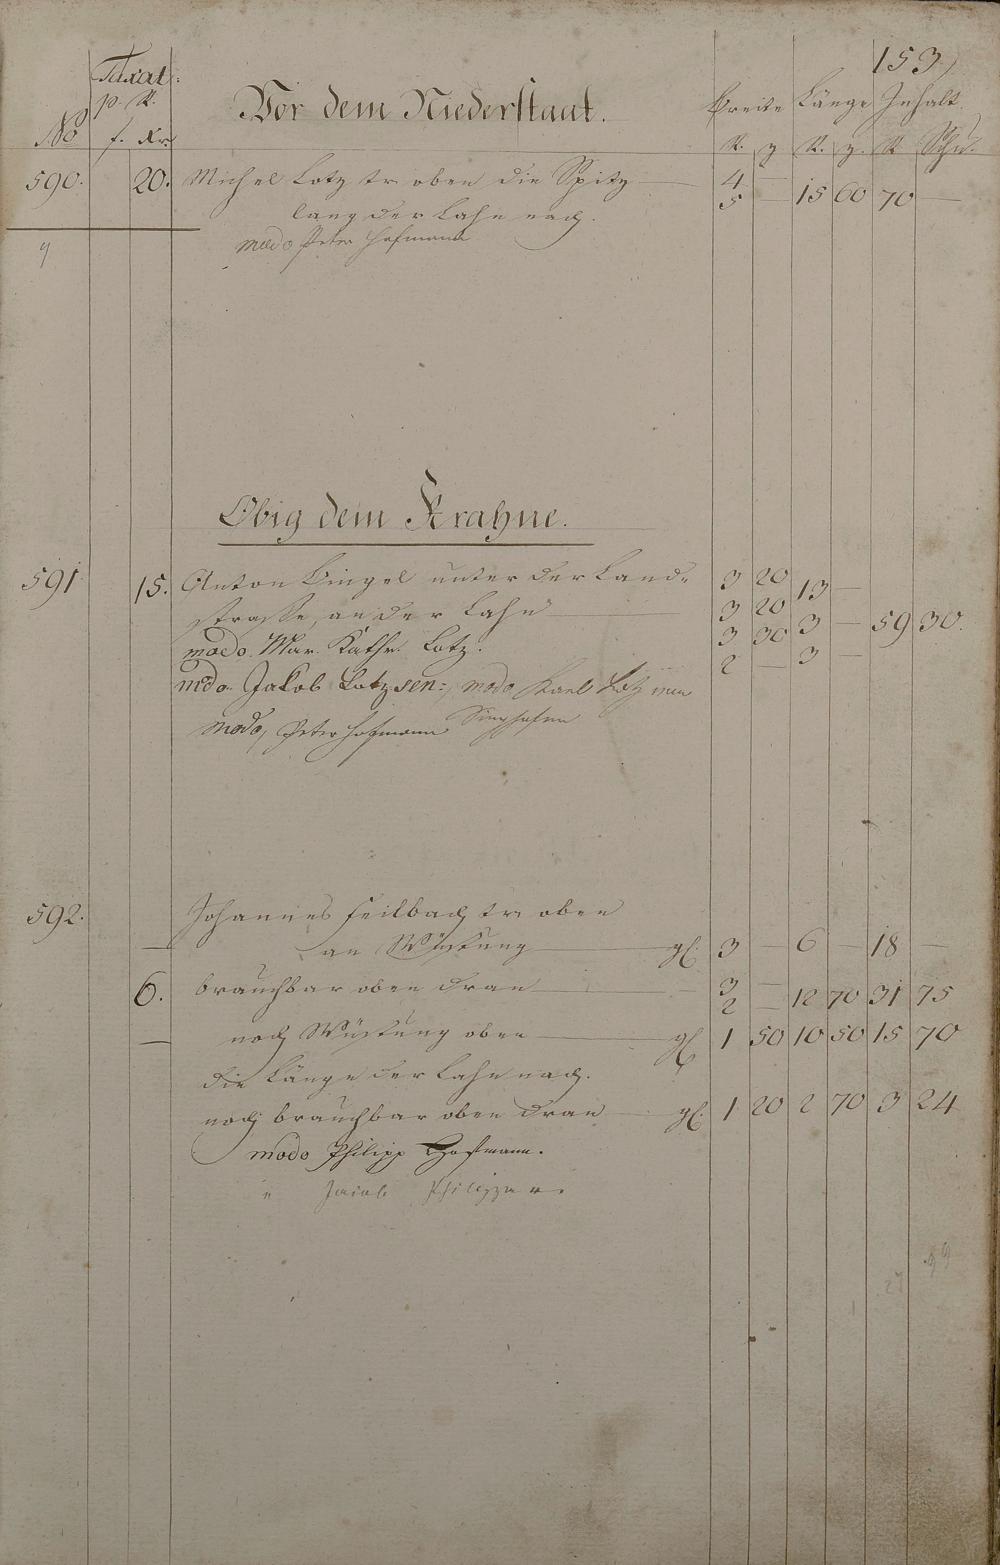 153)
Taxat:
p. R.
No f. Xr.
Vor dem Niederstaat.
Breite Länge Inhalt
R. z R. z. R Schu.
590. 20. Michel Lotz tr. oben die Spitz 4 — 15 60 70 —
5 —
lang der Lahn nach.
modo Peter Hofmann
Obig dem Krahne.
591 15. Anton Bingel unter der Land- 3 20 13 —
strasse, an der Lahn 3 20
modo. Mar. Kathr. Lotz. 3 30 3 — 59 30.
mdo. Jakob Lotz sen:, modo Karl Lotz 2 — 3 —
modo, Peter Hofmann Singhofen
592. Johannes Feilbach tr. oben
— an Wüstung gl. 3 — 6 — 18 —
6. brauchbar oben dran 3 — 12 70 31 75
2 —
— noch Wüstung oben gl. 1 50 10 50 15 70
die Länge der Lahn nach.
noch brauchbar oben dran gl. 1 20 2 70 3 24
modo Philipp Hofmann.
" Jacob